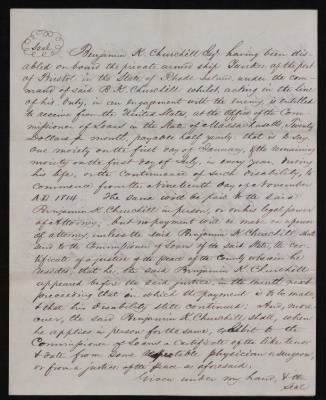 Seal
Benjamin K. Churchill Esqr. having been dis-
abled on board the private armed ship Yankee of the port
of Bristol in the State of Rhode Island, under the com-
mand of said B. K. Churchill whilst acting in the line
of his duty, in an engagement with the enemy, is entitled
to receive from the United States, at the Office of the Com-
missioner of Loans in the State of Massachusetts, twenty
Dollars a month, payable half yearly that is to say
One moiety on the first day of January, & the remaining
moiety on the first day of July, in every year, during
his life, or the continuance of such disability, to
commence from the nineteenth day of November
A.D. 1814. The same will be paid to the said
Benjamin K. Churchill in person, or on his legal power
of attorney, but no payment will be made on a power
of attorney, unless the said Benjamin K. Churchill shall
send to the Commissioner of Loans of the said State, the cer-
tificate of a justice of the peace of the County wherein he
resides, that he, the said Benjamin K. Churchill
appeared before the said justice, in the month next
preceeding that in which the payment is to be made,
& that his disability still continued. And, more
over, the said Benjamin K. Churchill, shall, when
he applies in person for the same, exhibit to the
Commissioner of Loans a certificate of the like tenor
& date from some respectable physician or surgeon,
or from a justice of the peace as aforesaid.
Given under my hand, & the
Seal